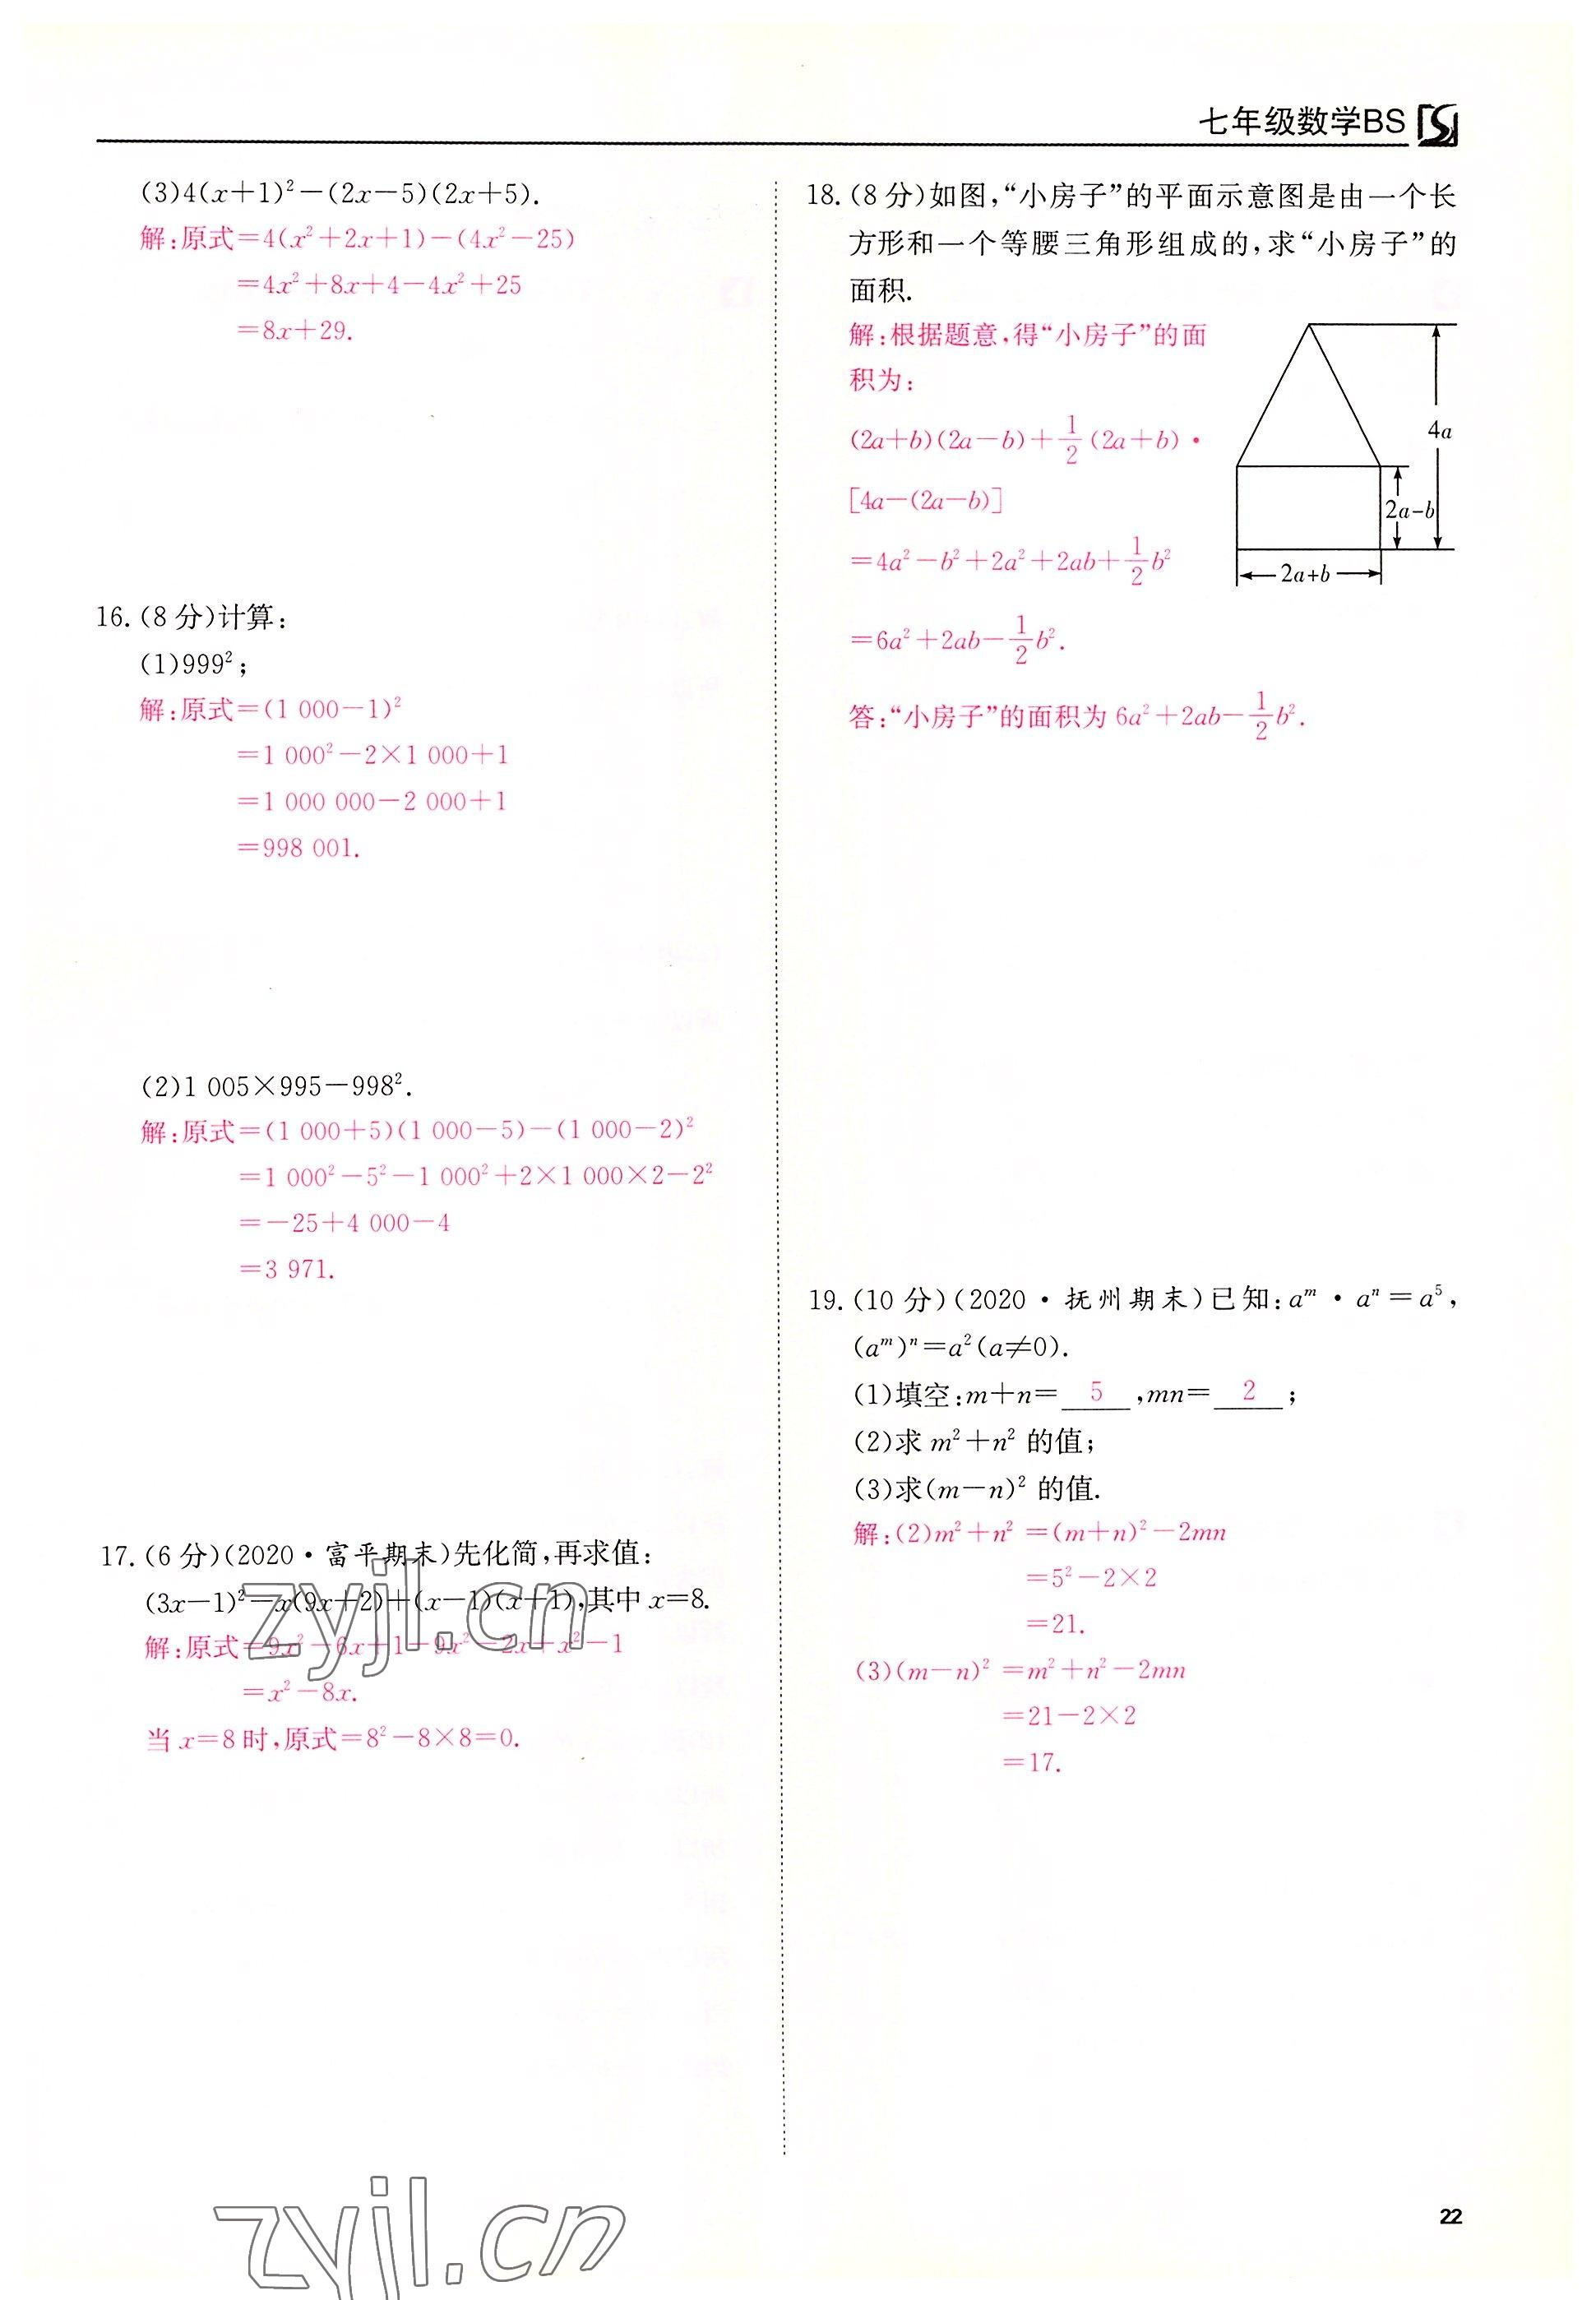 七年级数学BS
(3)4(x+1)²-(2x-5)(2x+5).
解:原式=4(x²+2x+1)-(4x²-25)
=4x²+8x+4-4x²+25
=8x+29.
16.(8分)计算:
(1)999²;
解:原式=(1 000-1)²
=1 000²-2×1 000+1
=1 000 000-2 000+1
=998 001.
(2)1 005×995-998².
解:原式=(1 000+5)(1 000-5)-(1 000-2)²
=1 000²-5²-1 000²+2×1 000×2-2²
=-25+4 000-4
=3 971.
17.(6分)(2020·富平期末)先化简,再求值:
(3x-1)²-x(9x+2)+(x-1)(x+1),其中x=8.
解:原式=9x²-6x+1-9x²-2x+x²-1
=x²-8x.
当x=8时,原式=8²-8×8=0.
zyjl.cn
18.(8分)如图,“小房子”的平面示意图是由一个长
方形和一个等腰三角形组成的,求“小房子”的
面积.
解:根据题意,得“小房子”的面
积为:
(2a+b)(2a-b)+1/2(2a+b)·
[4a-(2a-b)]
=4a²-b²+2a²+2ab+1/2b²
=6a²+2ab-1/2b².
答:“小房子”的面积为6a²+2ab-1/2b².
4a
2a-b
2a+b
19.(10分)(2020·抚州期末)已知:aᵐ·aⁿ=a⁵,
(aᵐ)ⁿ=a²(a≠0).
(1)填空:m+n=5,mn=2;
(2)求m²+n²的值;
(3)求(m-n)²的值.
解:(2)m²+n²=(m+n)²-2mn
=5²-2×2
=21.
(3)(m-n)²=m²+n²-2mn
=21-2×2
=17.
zyjl.cn
22